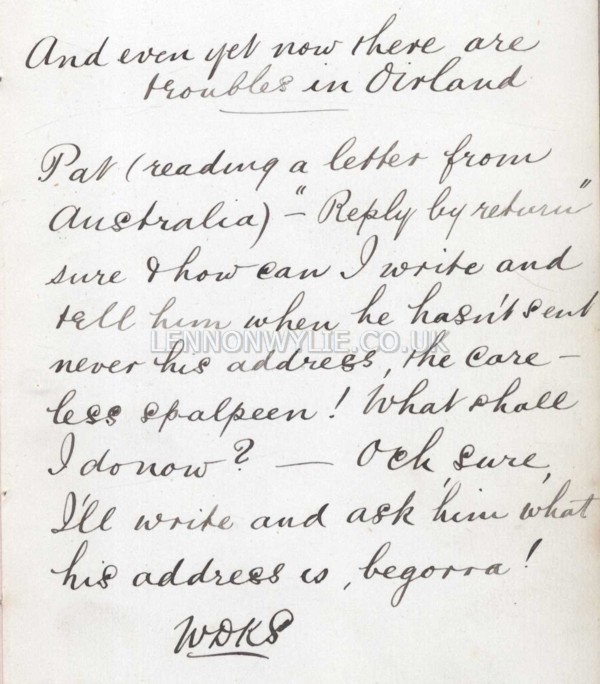 And even yet now there are
troubles in Oirland
Pat (reading a letter from
Australia) - "Reply by return"
sure & how can I write and
tell him when he hasn't sent
LENNONWYLIE.CO.UK
never his address, the care -
less spalpeen! What shall
I do now? — Och, sure,
I'll write and ask him what
his address is, begorra!
WDKS